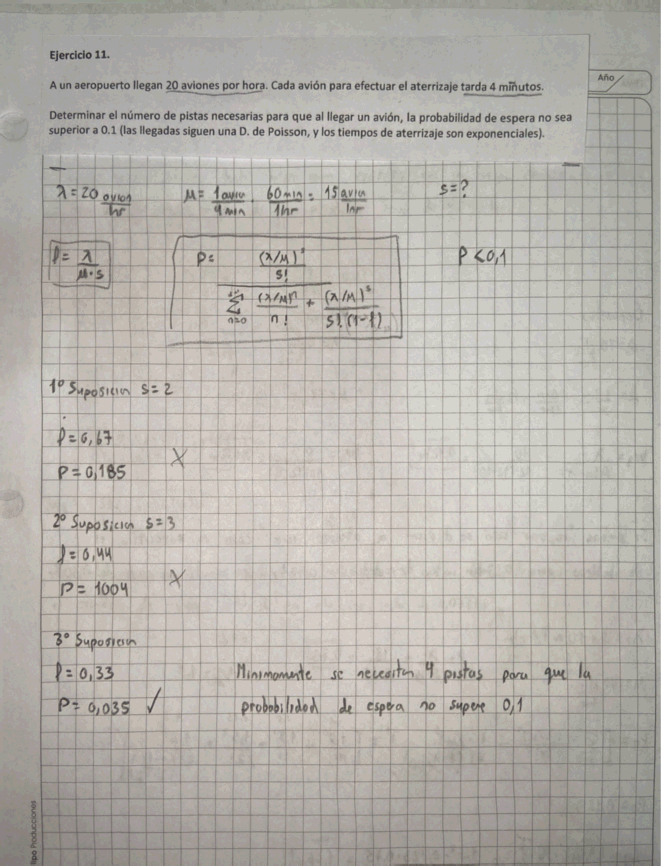 Ejercicio 11.
A un aeropuerto llegan 20 aviones por hora. Cada avión para efectuar el aterrizaje tarda 4 minutos.
Año
Determinar el número de pistas necesarias para que al llegar un avión, la probabilidad de espera no sea
superior a 0.1 (las llegadas siguen una D. de Poisson, y los tiempos de aterrizaje son exponenciales).
λ = 20 avion/hr μ = 1 avion/4 min · 60 min/1 hr = 15 avion/hr s = ?
ρ = λ/(μ·s) P = ((λ/μ)^s/s!) / (Σ n=0 (λ/μ)^n/n! + (λ/μ)^s/(s!(1-ρ))) P < 0,1
1º Suposicion s = 2
ρ = 0,67
P = 0,185 X
2º Suposicion s = 3
ρ = 0,44
P = 1004 X
3º Suposicion
ρ = 0,33 Minimamente se necesitan 4 pistas para que la
P = 0,035 ✓ probabilidad de espera no supere 0,1
Producciones